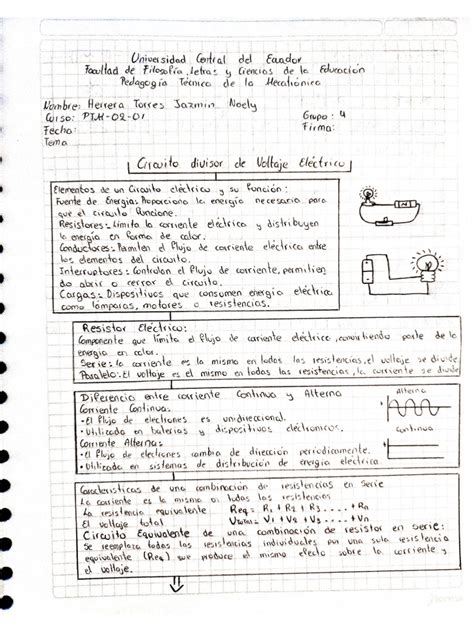 Universidad Central del Ecuador
Facultad de Filosofía, Letras y Ciencias de la Educación
Pedagogía Técnica de la Mecatrónica
Nombre: Herrera Torres Jazmin Noely
Curso: PTM-02-01
Grupo: 4
Fecha:
Firma:
Tema
Circuito divisor de Voltaje Eléctrico
Elementos de un Circuito eléctrico y su Función:
Fuente de Energía: Proporciona la energía necesaria para
que el circuito funcione.
Resistores: Limita la corriente eléctrica y distribuyen
la energía en forma de calor.
Conductores: Permiten el flujo de corriente eléctrica entre
los elementos del circuito.
Interruptores: Controlan el flujo de corriente, permitien
do abrir o cerrar el circuito.
Cargas: Dispositivos que consumen energía eléctrica
como lámparas, motores o resistencias.
Resistor Eléctrico:
Componente que limita el flujo de corriente eléctrica, convirtiendo parte de la
energía en calor.
Serie: la corriente es la misma en todas las resistencias, el voltaje se divide
Paralelo: El voltaje es el mismo en todas las resistencias, la corriente se divide
Diferencia entre corriente Continua y Alterna
Corriente Continua:
• El flujo de electrones es unidireccional.
• Utilizada en baterías y dispositivos eléctronicos.
Corriente Alterna:
• El flujo de electrones cambia de dirección periodicamente.
• Utilizada en sistemas de distribución de energía eléctrica
Alterna
Continua
Características de una combinación de resistencias en Serie
La corriente es la misma en todas las resistencias
La resistencia equivalente Req = R1 + R2 + R3 .... + Rn
El voltaje total Vtotal = V1 + V2 + V3 ..... + Vn
Circuito Equivalente de una combinación de resistor en serie:
Se reemplaza todas las resistencias individuales por una sola resistencia
equivalente (Req) que produce el mismo efecto sobre la corriente y
el voltaje.